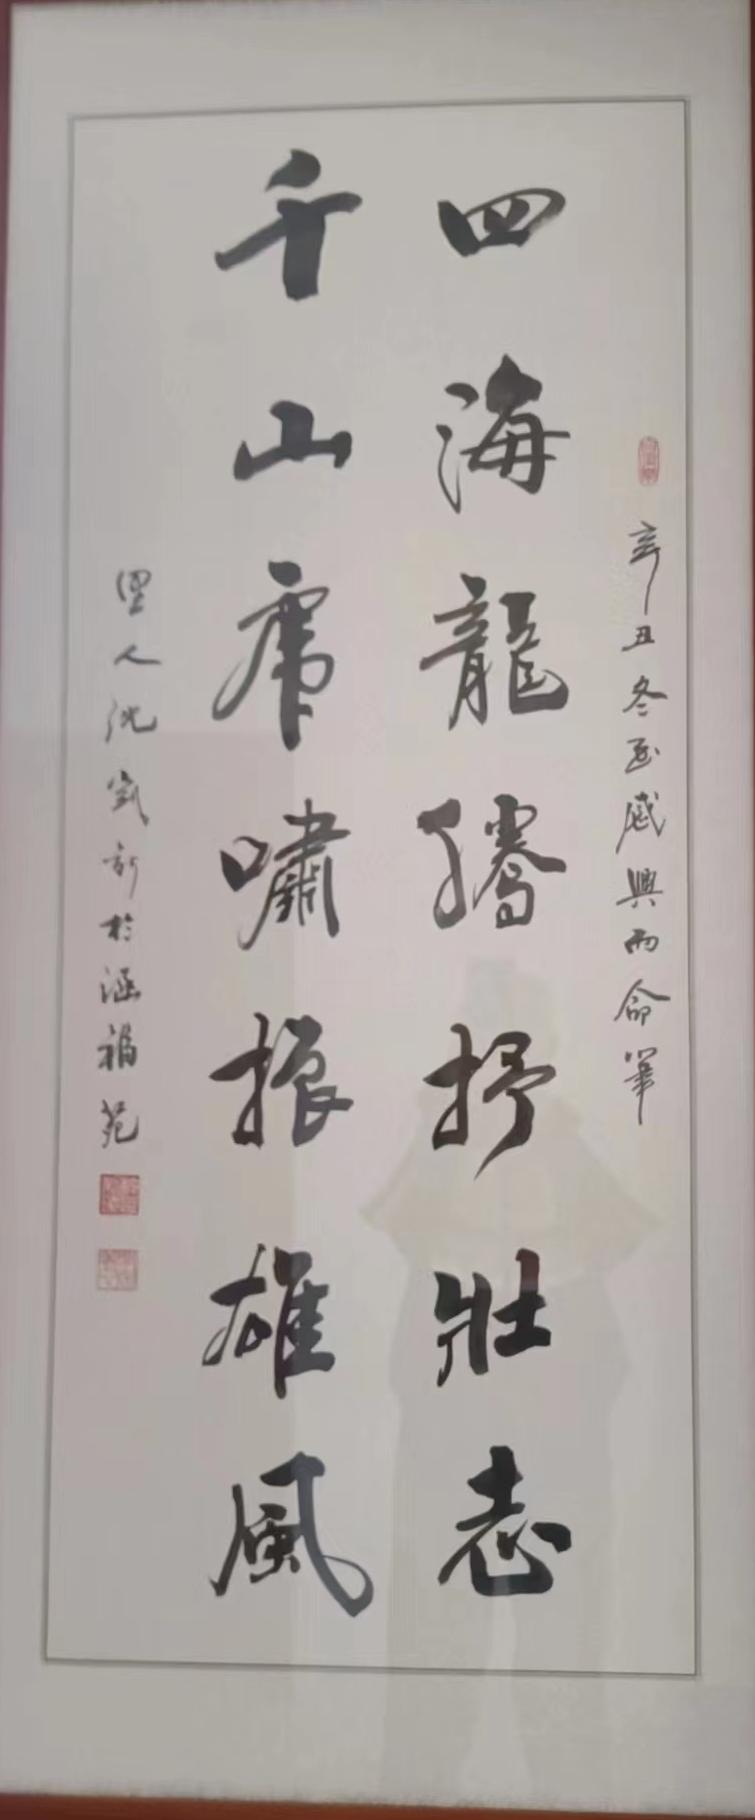 辛丑冬至感興而命筆
四海龍騰抒壯志
千山虎嘯振雄風
里人沈 新於涵福苑